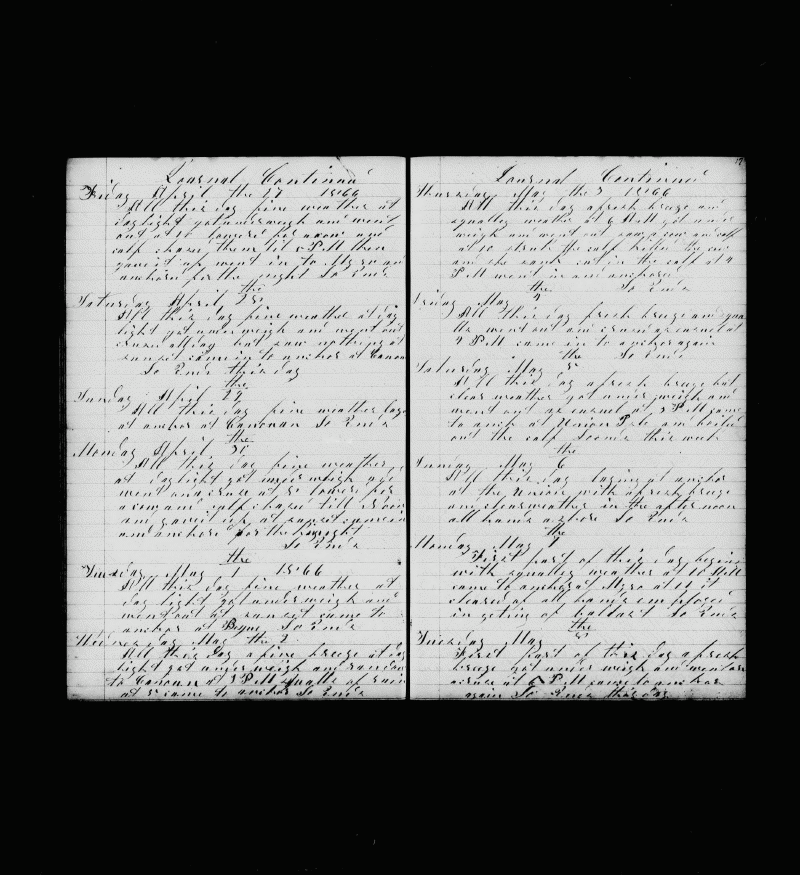 Journal Continued
Friday April the 27 1866
All this day fine weather at
day light got underweigh and went
out at 10 lowered for a cow and
calf chase them till 5 P M then
gave it up went in to and
anchored for the night So Ends
the
Saturday April 28
All this day fine weather at day
light got underweigh and went out
cruse all day but saw nothing at
sunset came in to anchor at Canoun
So Ends this day
the
Sunday April 29
All this day fine weather
at anchor at Canouan So Ends
the
Monday April 30
All this day fine weather
at day light got underweigh
went and cruse at 8 lowered for
a cow and calf chase till
and gave it up at sunset came in
and anchored for the night
So Ends
the
Tuesday May 1 1866
All this day fine weather at
day light got underweigh and
went out at sunset came to
anchor at So Ends
Wednesday May the 2
All this day a fine breeze at day
light got underweigh and
to Canoun at 3 P M squalls of rain
at 5 came to anchor So Ends
17
Journal Continued
Thursday May the 3 1866
All this day a fresh breeze and
squally weather at 6 A M got under
weigh and went out saw a cow and calf
at 10 struck the calf the cow
and she sunk cut in the calf at 4
P M went in and anchored
the So Ends
Friday May 4
All this day fresh breeze and
went out and cruse at
P M came in to anchor again
the So Ends
Saturday May 5
All this day a fresh breeze but
clear weather got underweigh and
went out at 3 P M came
to anchor at Union and boiled
out the calf So ends this week
the
Sunday May 6
All this day begins at anchor
at the Union with a fresh breeze
and clear weather in the after noon
all hands ashore So Ends
the
Monday May 7
First part of this day begins
with squally weather at 10 A M
came to anchor at at 12 it
cleared of all hands employed
in geting of ballast So Ends
the
Tuesday May 8
First part of this day a fresh
breeze got underweigh and went on
a cruse at 6 P M came to anchor
again So Ends this day